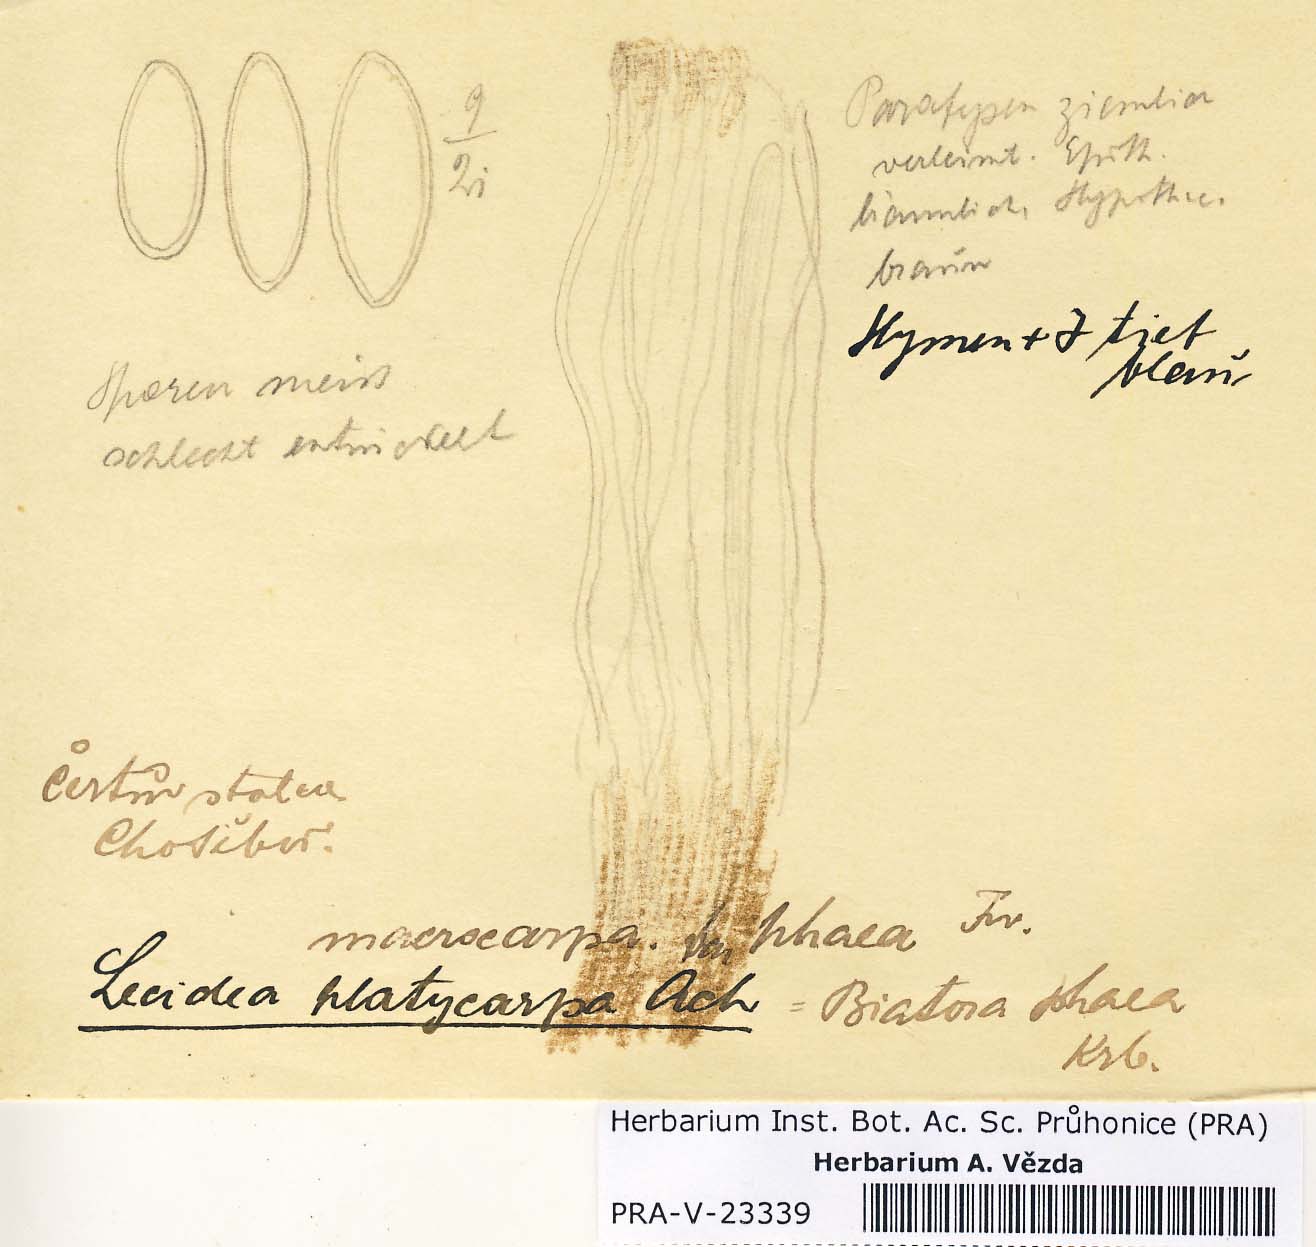 9
21
Paraphysen ziemlich
verleimt. Epith.
bräunlich, Hypothec.
braun
Hymen + J tief
blau
Sporen meist
schlecht entwickelt
Čertův stolek
Chotěboř.
macrocarpa. var phaea Fw.
Lecidea platycarpa Ach = Biatora phaea
Krb.
Herbarium Inst. Bot. Ac. Sc. Průhonice (PRA)
Herbarium A. Vězda
PRA-V-23339